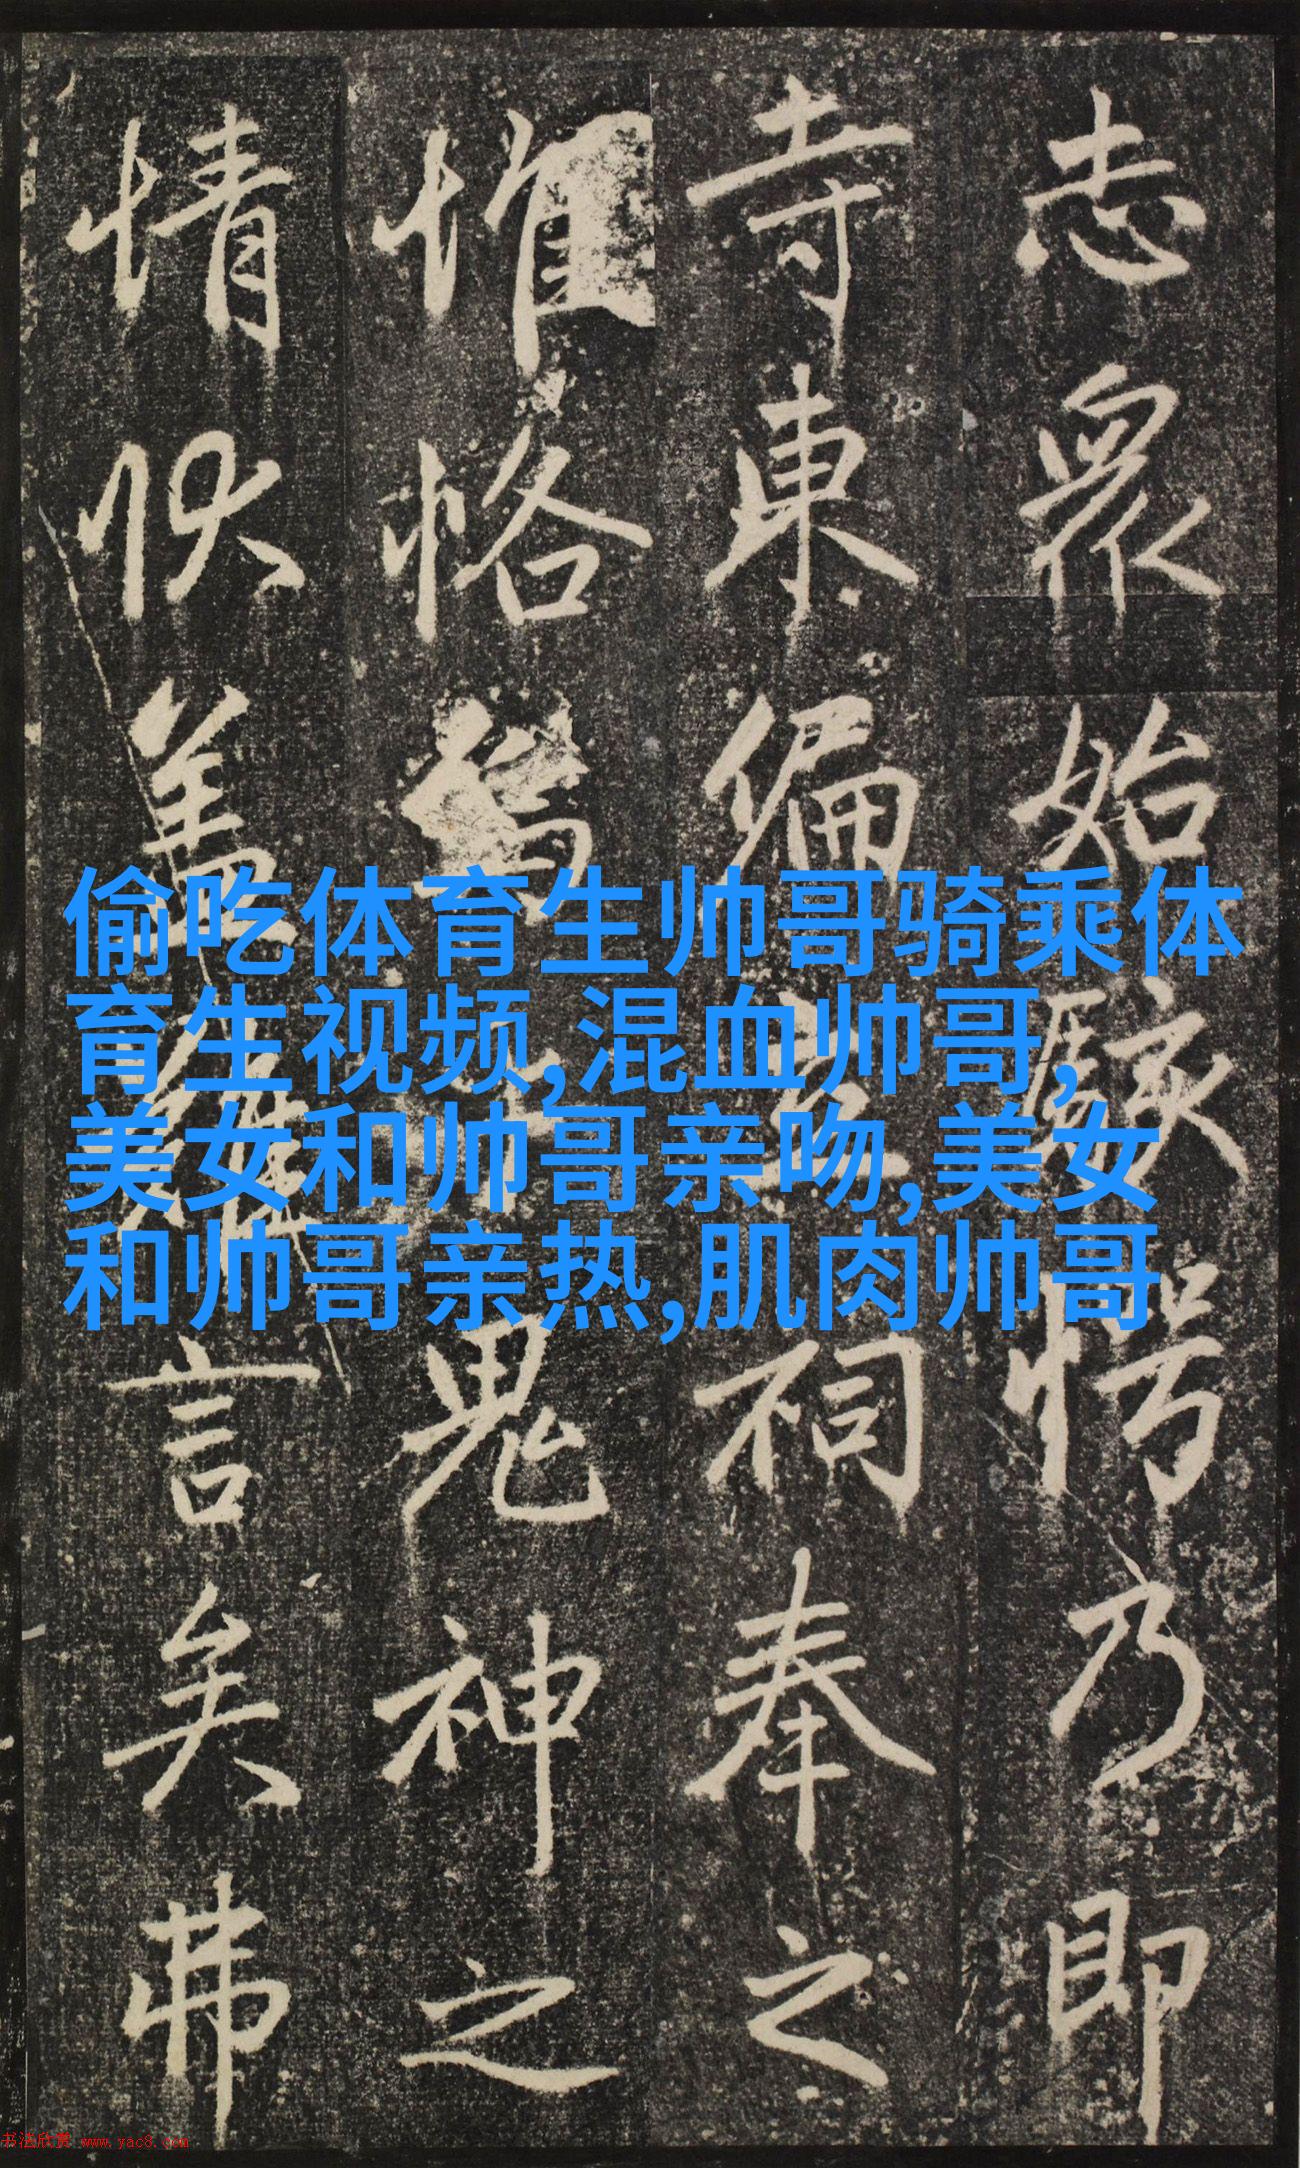 志眾始駭愕乃即
寺東偏立祠奉之
惟恪焉鬼神之
情狀盖難言矣弗
偷吃体育生帅哥骑乘体
育生视频,混血帅哥,
美女和帅哥亲吻,美女
和帅哥亲热,肌肉帅哥
书法欣赏 www.yac8.com